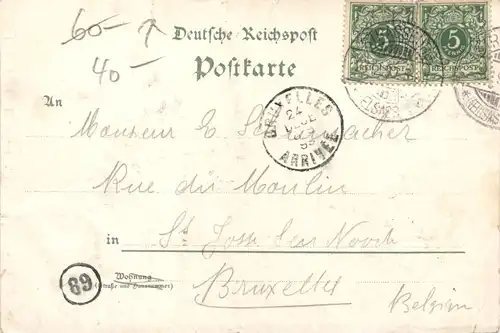 60-
40-
Deutsche Reichspost
Postkarte
5 5
REICHSPOST REICHSPOST
An
Monsieur E.
BRUXELLES
24
ARRIVEE
Rue du Moulin
in St Josse Ten Noode
Wohnung
(Straße und Hausnummer)
Bruxelles
Belgien
89